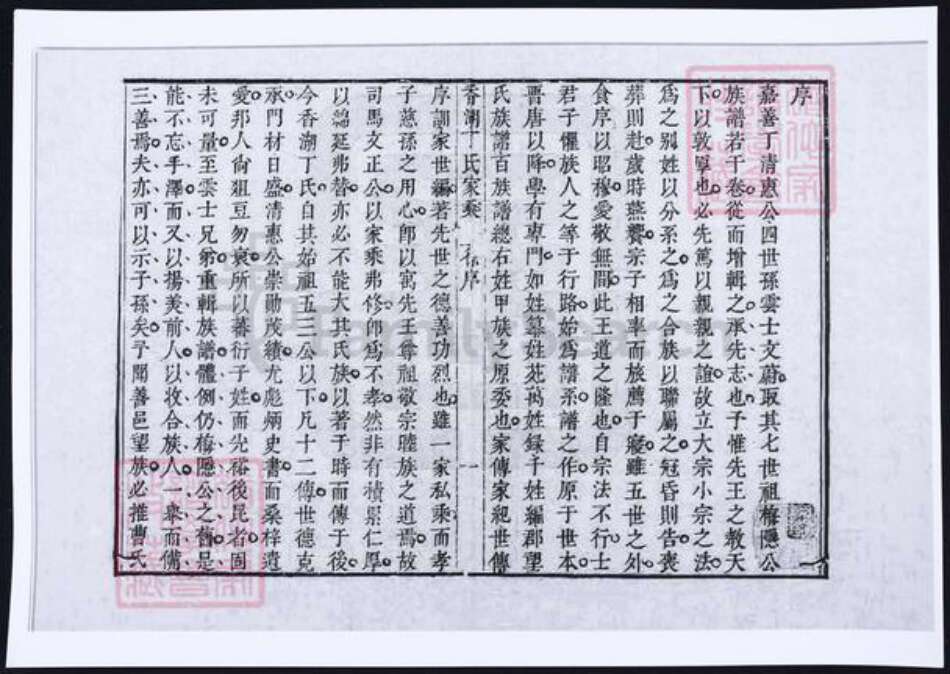 序
嘉善丁清惠公四世孫雲士文蔚取其七世祖梅隱公
族譜若干卷從而增輯之承先志也予惟先王之教天
下以敦睾也必先篤以親親之誼故立大宗小宗之法
爲之別姓以分系之爲之合族以聯屬之冠昏則告喪
葬則赴歲時燕饗宗子相率而旅薦于寢雖五世之外
食序以昭穆愛敬無間此王道之隆也自宗法不行士
君子懼族人之等于行路始爲譜系譜之作原于世本
晋唐以降學有專門如姓纂姓苑萬姓録千姓編郡望
氏族譜百族譜總右姓甲族之原委也家傳家紀世傳
香湖丁氏家乘 序 一
序訓家世編著先世之德善功烈也雖一家私乘而孝
子慈孫之用心卽以寓先王尊祖敬宗睦族之道焉故
司馬文正公以家乘弗修卽爲不孝然非有積累仁厚
以綿延弗替亦必不能大其氏族以著于時而傳于後
今香湖丁氏自其始祖五三公以下凡十二傳世德克
承門材日盛清惠公崇勛茂績尤彪炳史書而桑梓遺
愛邦人尙俎豆勿衰所以蕃衍子姓而光裕後昆者固
未可量至雲士兄弟重輯族譜體例仍梅隱公之舊是
能不忘手澤而又以揚美前人以收合族人一舉而備
三善焉夫亦可以示子孫矣予聞善邑望族必推曹氏
FamilySearch